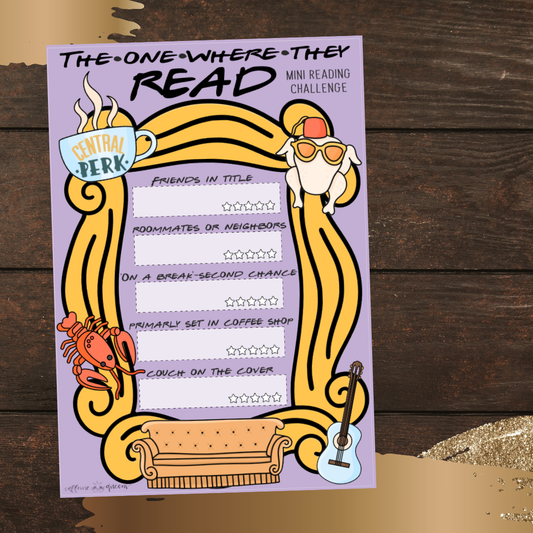 THE•ONE•WHERE•THEY
READ
MINI READING
CHALLENGE
CENTRAL
•PERK•
FRIENDS IN TITLE
ROOMMATES OR NEIGHBORS
ON A BREAK-SECOND CHANCE
PRIMARLY SET IN COFFEE SHOP
COUCH ON THE COVER